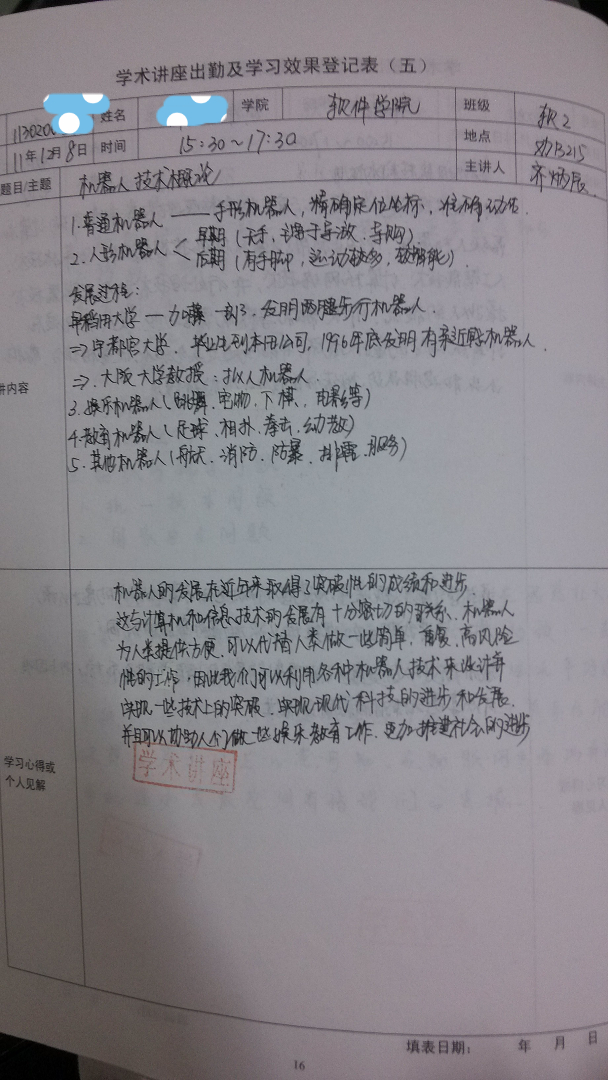 学术讲座出勤及学习效果登记表（五）
姓名 学院 软件学院 班级 软2
11年12月8日 时间 15:30~17:30 地点 B215
题目/主题 机器人技术概论 主讲人
1.普通机器人——手形机器人，精确定位坐标，准确动作.
2.人形机器人< 早期（无手，主用于导游、导购）
后期（有手脚，运动较多，较智能）.
发展过程：
早稻田大学—加藤一郎.发明两腿步行机器人.
⇒宇都宫大学.毕业生到本田公司,1996年底发明有亲近感机器人.
⇒.大阪大学教授：拟人机器人.
3.娱乐机器人（跳舞、宠物、下棋、电影等）
4.教育机器人（足球、相扑、拳击、幼教）
5.其他机器人（航天、消防、防暴、排雷、服务）
讲内容
机器人的发展在近年来取得了突破性的成绩和进步.
这与计算机和信息技术的发展有十分密切的联系、机器人
为人类提供方便.可以代替人类做一些简单、重复、高风险
性的工作.因此我们可以利用各种机器人技术来设计并
实现一些技术上的突破.实现现代科技的进步和发展.
并且可以协助人们做一些娱乐教育工作.更加推进社会的进步
学习心得或
个人见解
学术讲座
填表日期： 年 月 日
16